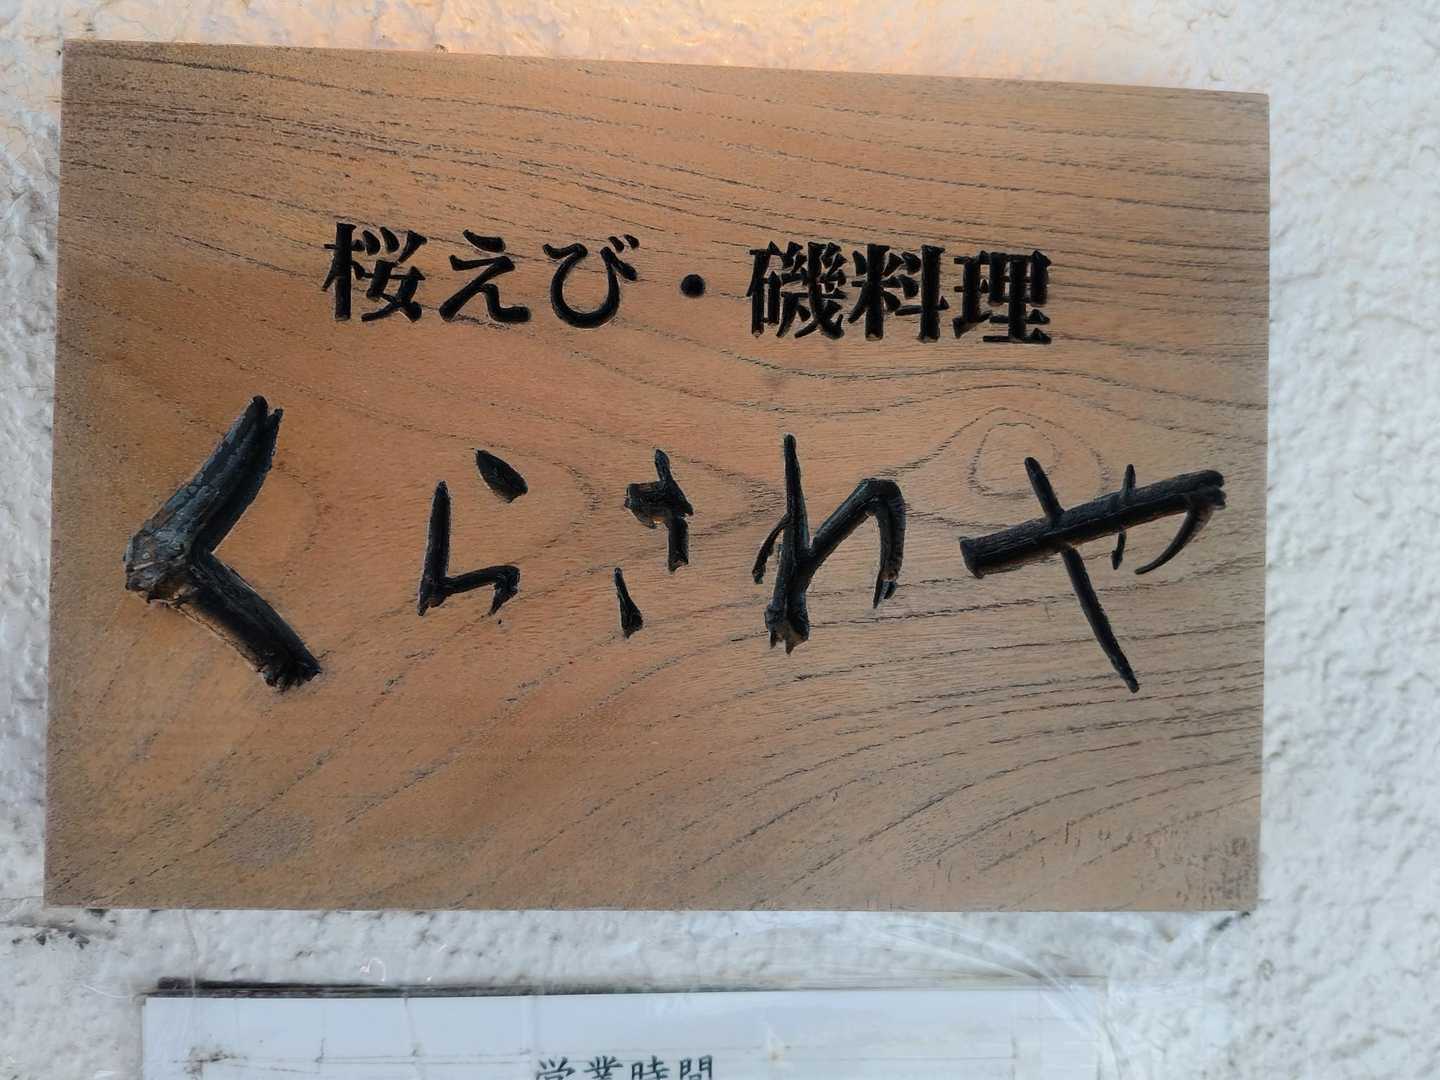 桜えび・磯料理
くらさわや
営業時間